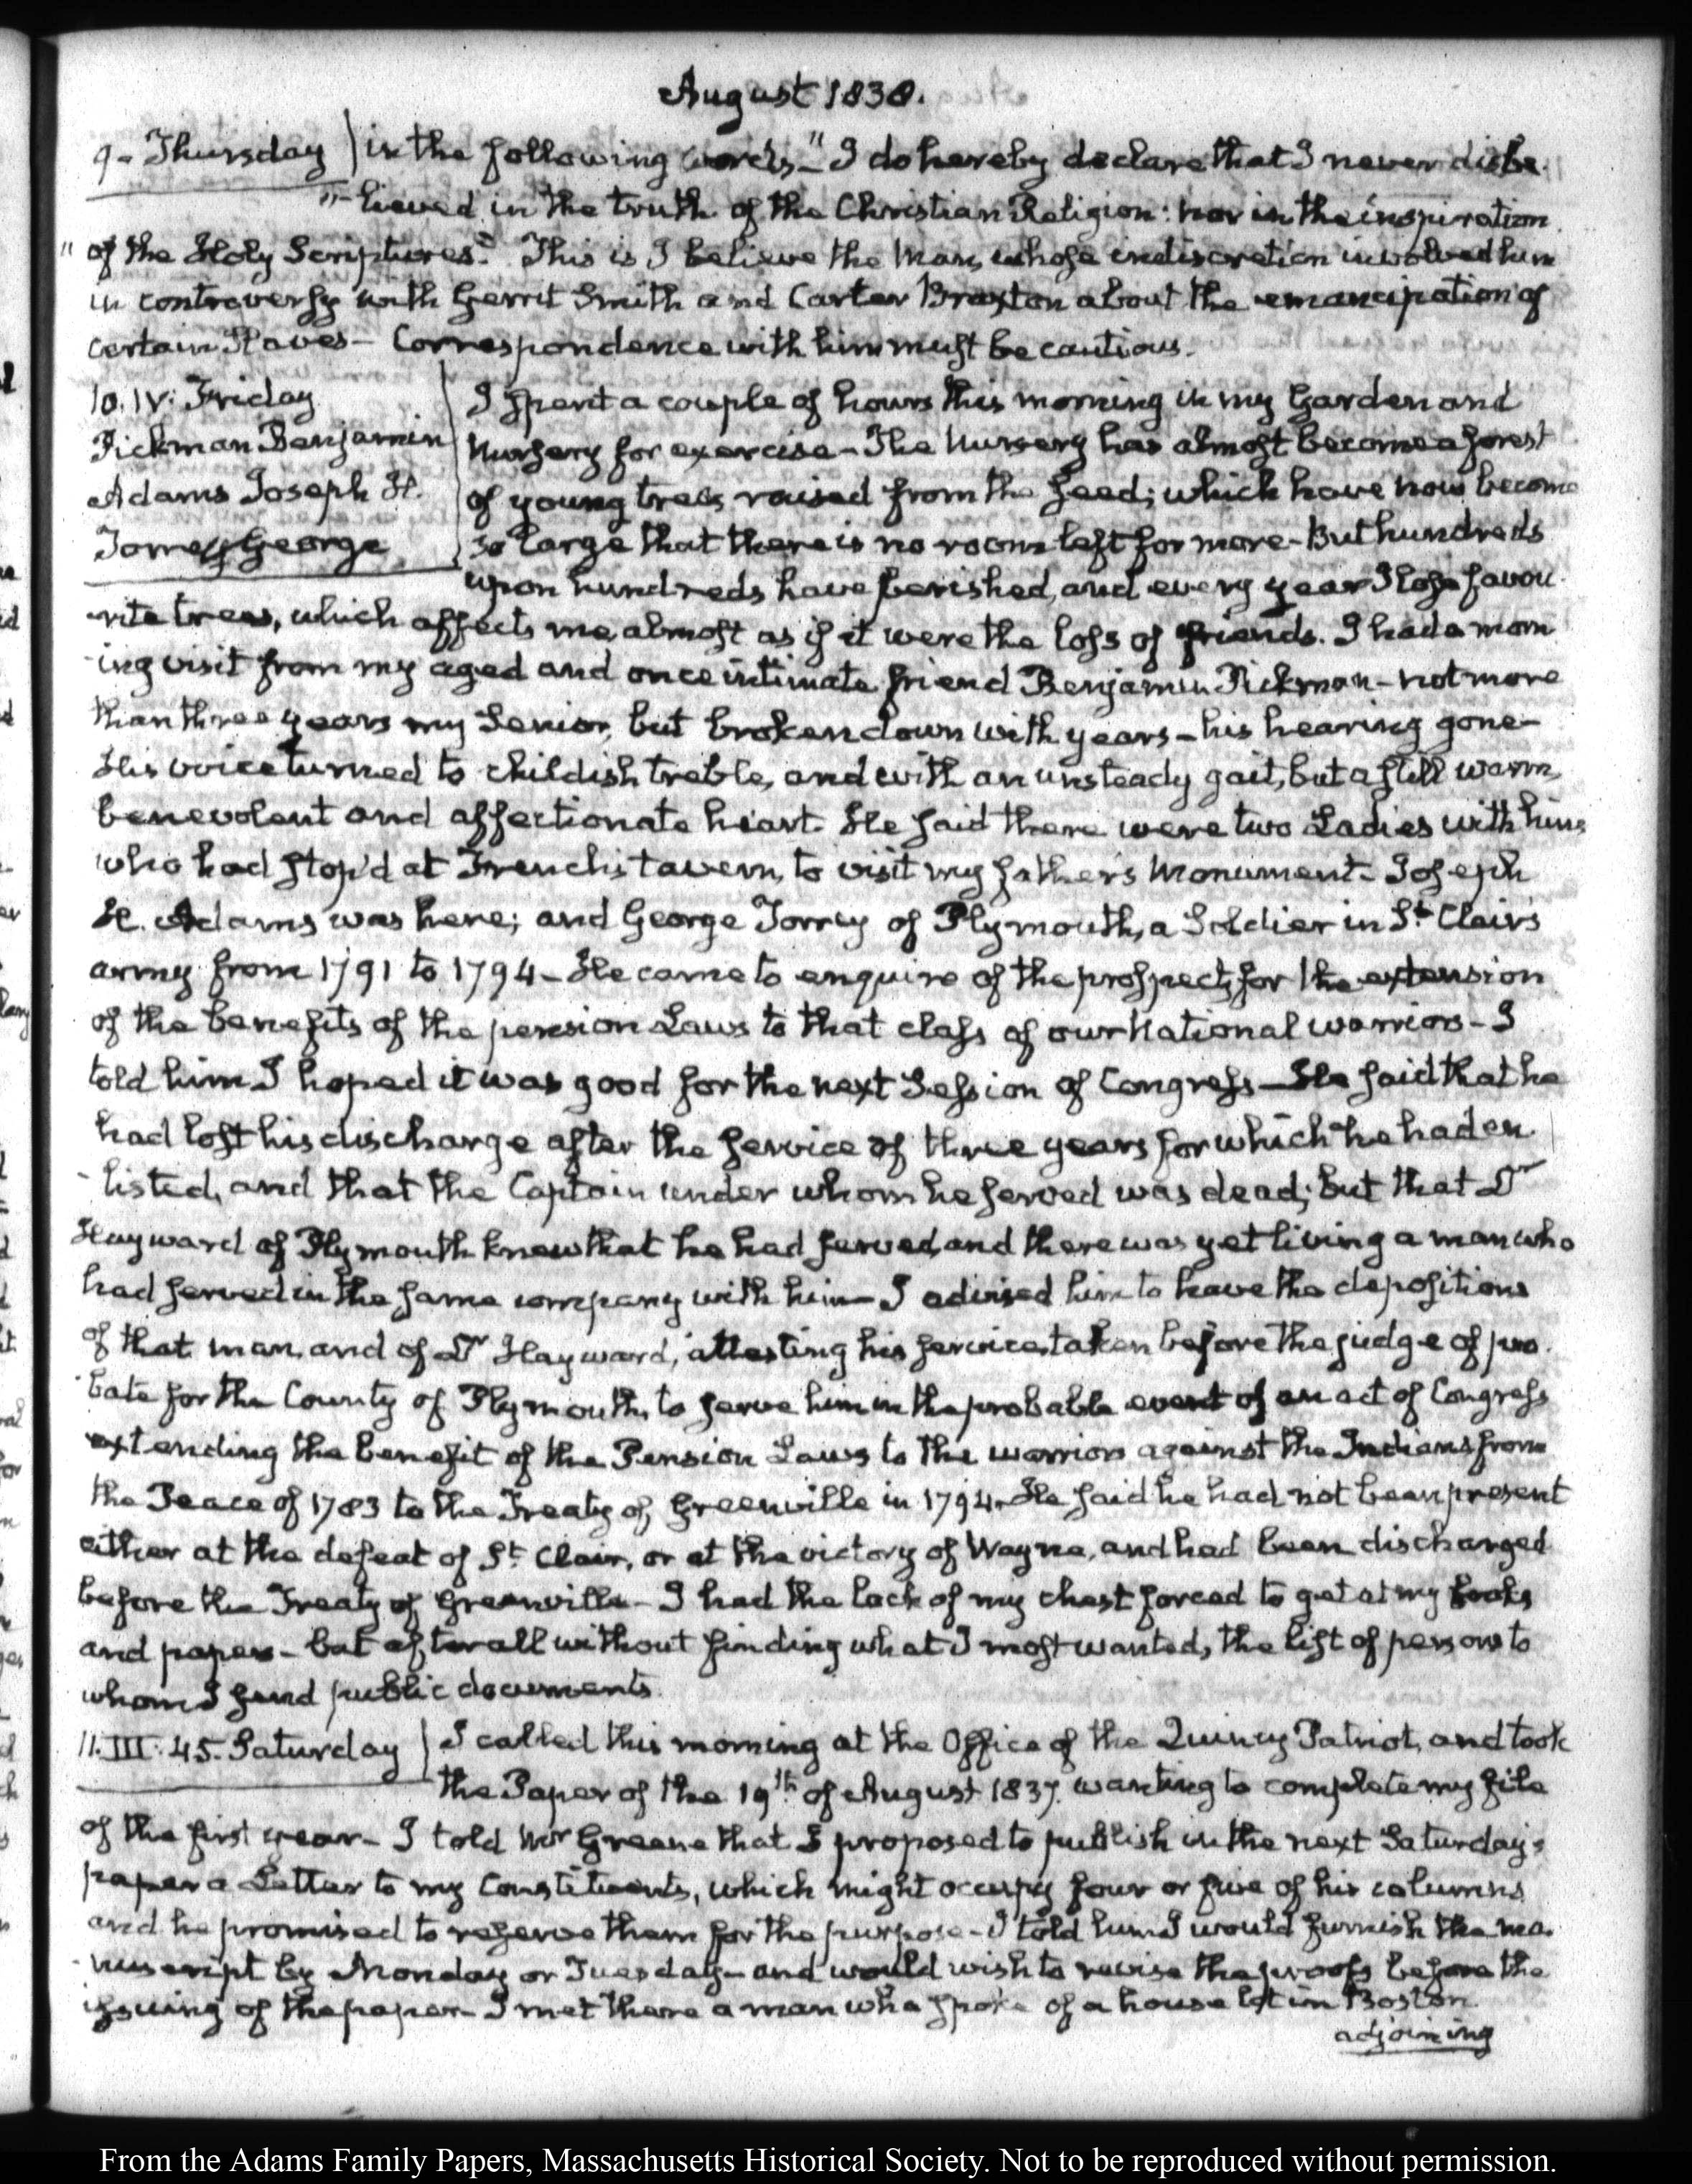 August 1838.
9. Thursday in the following words, "I do hereby declare that I never disbe-
"-lieved in the truth of the Christian Religion: nor in the inspiration
"of the Holy Scriptures." This is I believe the Man, whose indiscretion involved him
in controversy with Gerrit Smith and Carter Braxton about the emancipation of
certain Slaves- Correspondence with him must be cautious.
10. IV. Friday
Pickman Benjamin
Adams Joseph H.
Torrey George
I spent a couple of hours this morning in my Garden and
Nursery for exercise- The Nursery has almost become a forest
of young trees raised from the seed; which have now become
so large that there is no room left for more- But hundreds
upon hundreds have perished, and every year I lose favou-
-rite trees, which affects me almost as if it were the loss of friends. I had a morn-
-ing visit from my aged and once intimate friend Benjamin Pickman- not more
than three years my Senior, but broken down with years- his hearing gone-
His voice turned to childish treble, and with an unsteady gait, but a still warm,
benevolent and affectionate heart. He said there were two Ladies with him
who had stop'd at French's tavern, to visit my father's Monument- Joseph
H. Adams was here; and George Torrey of Plymouth, a Soldier in St. Clair's
army from 1791 to 1794- He came to enquire of the prospects for the extension
of the benefits of the pension Laws to that class of our National warriors- I
told him I hoped it was good for the next Session of Congress- He said that he
had lost his discharge after the service of three years for which he had en-
-listed, and that the Captain under whom he served was dead; but that Dr
Hayward of Plymouth knew that he had served, and there was yet living a man who
had served in the same company with him- I advised him to have the depositions
of that man, and of Dr Hayward, attesting his service, taken before the judge of pro-
-bate for the County of Plymouth, to serve him in the probable event of an act of Congress
extending the benefit of the Pension Laws to the warriors against the Indians from
the Peace of 1783 to the Treaty of Greenville in 1794. He said he had not been present
either at the defeat of St. Clair, or at the victory of Wayne, and had been discharged
before the Treaty of Greenville- I had the lock of my chest forced to get at my books
and papers- but after all without finding what I most wanted, the list of persons to
whom I send public documents.
11. III. 45. Saturday I called this morning at the Office of the Quincy Patriot, and took
the Paper of the 19th of August 1837. wanting to complete my file
of the first year- I told Mr Greene that I proposed to publish in the next Saturday's
paper a Letter to my Constituents, which might occupy four or five of his columns
and he promised to reserve them for the purpose- I told him I would furnish the ma-
-nuscript by Monday or Tuesday- and would wish to revise the proofs before the
issuing of the paper- I met there a man who spoke of a house lot in Boston
adjoining
From the Adams Family Papers, Massachusetts Historical Society. Not to be reproduced without permission.